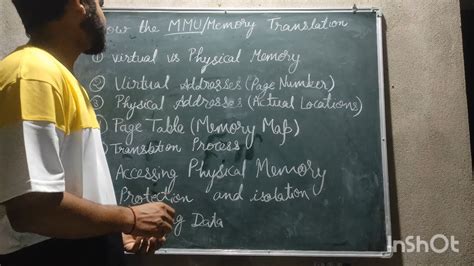 ow the MMU/Memory Translation
① Virtual vs Physical Memory
② Virtual Addresses (Page Number)
③ Physical Addresses (Actual Locations)
Page Table (Memory Map)
Translation Process
Accessing Physical Memory
Protection and isolation
Data
InShOt